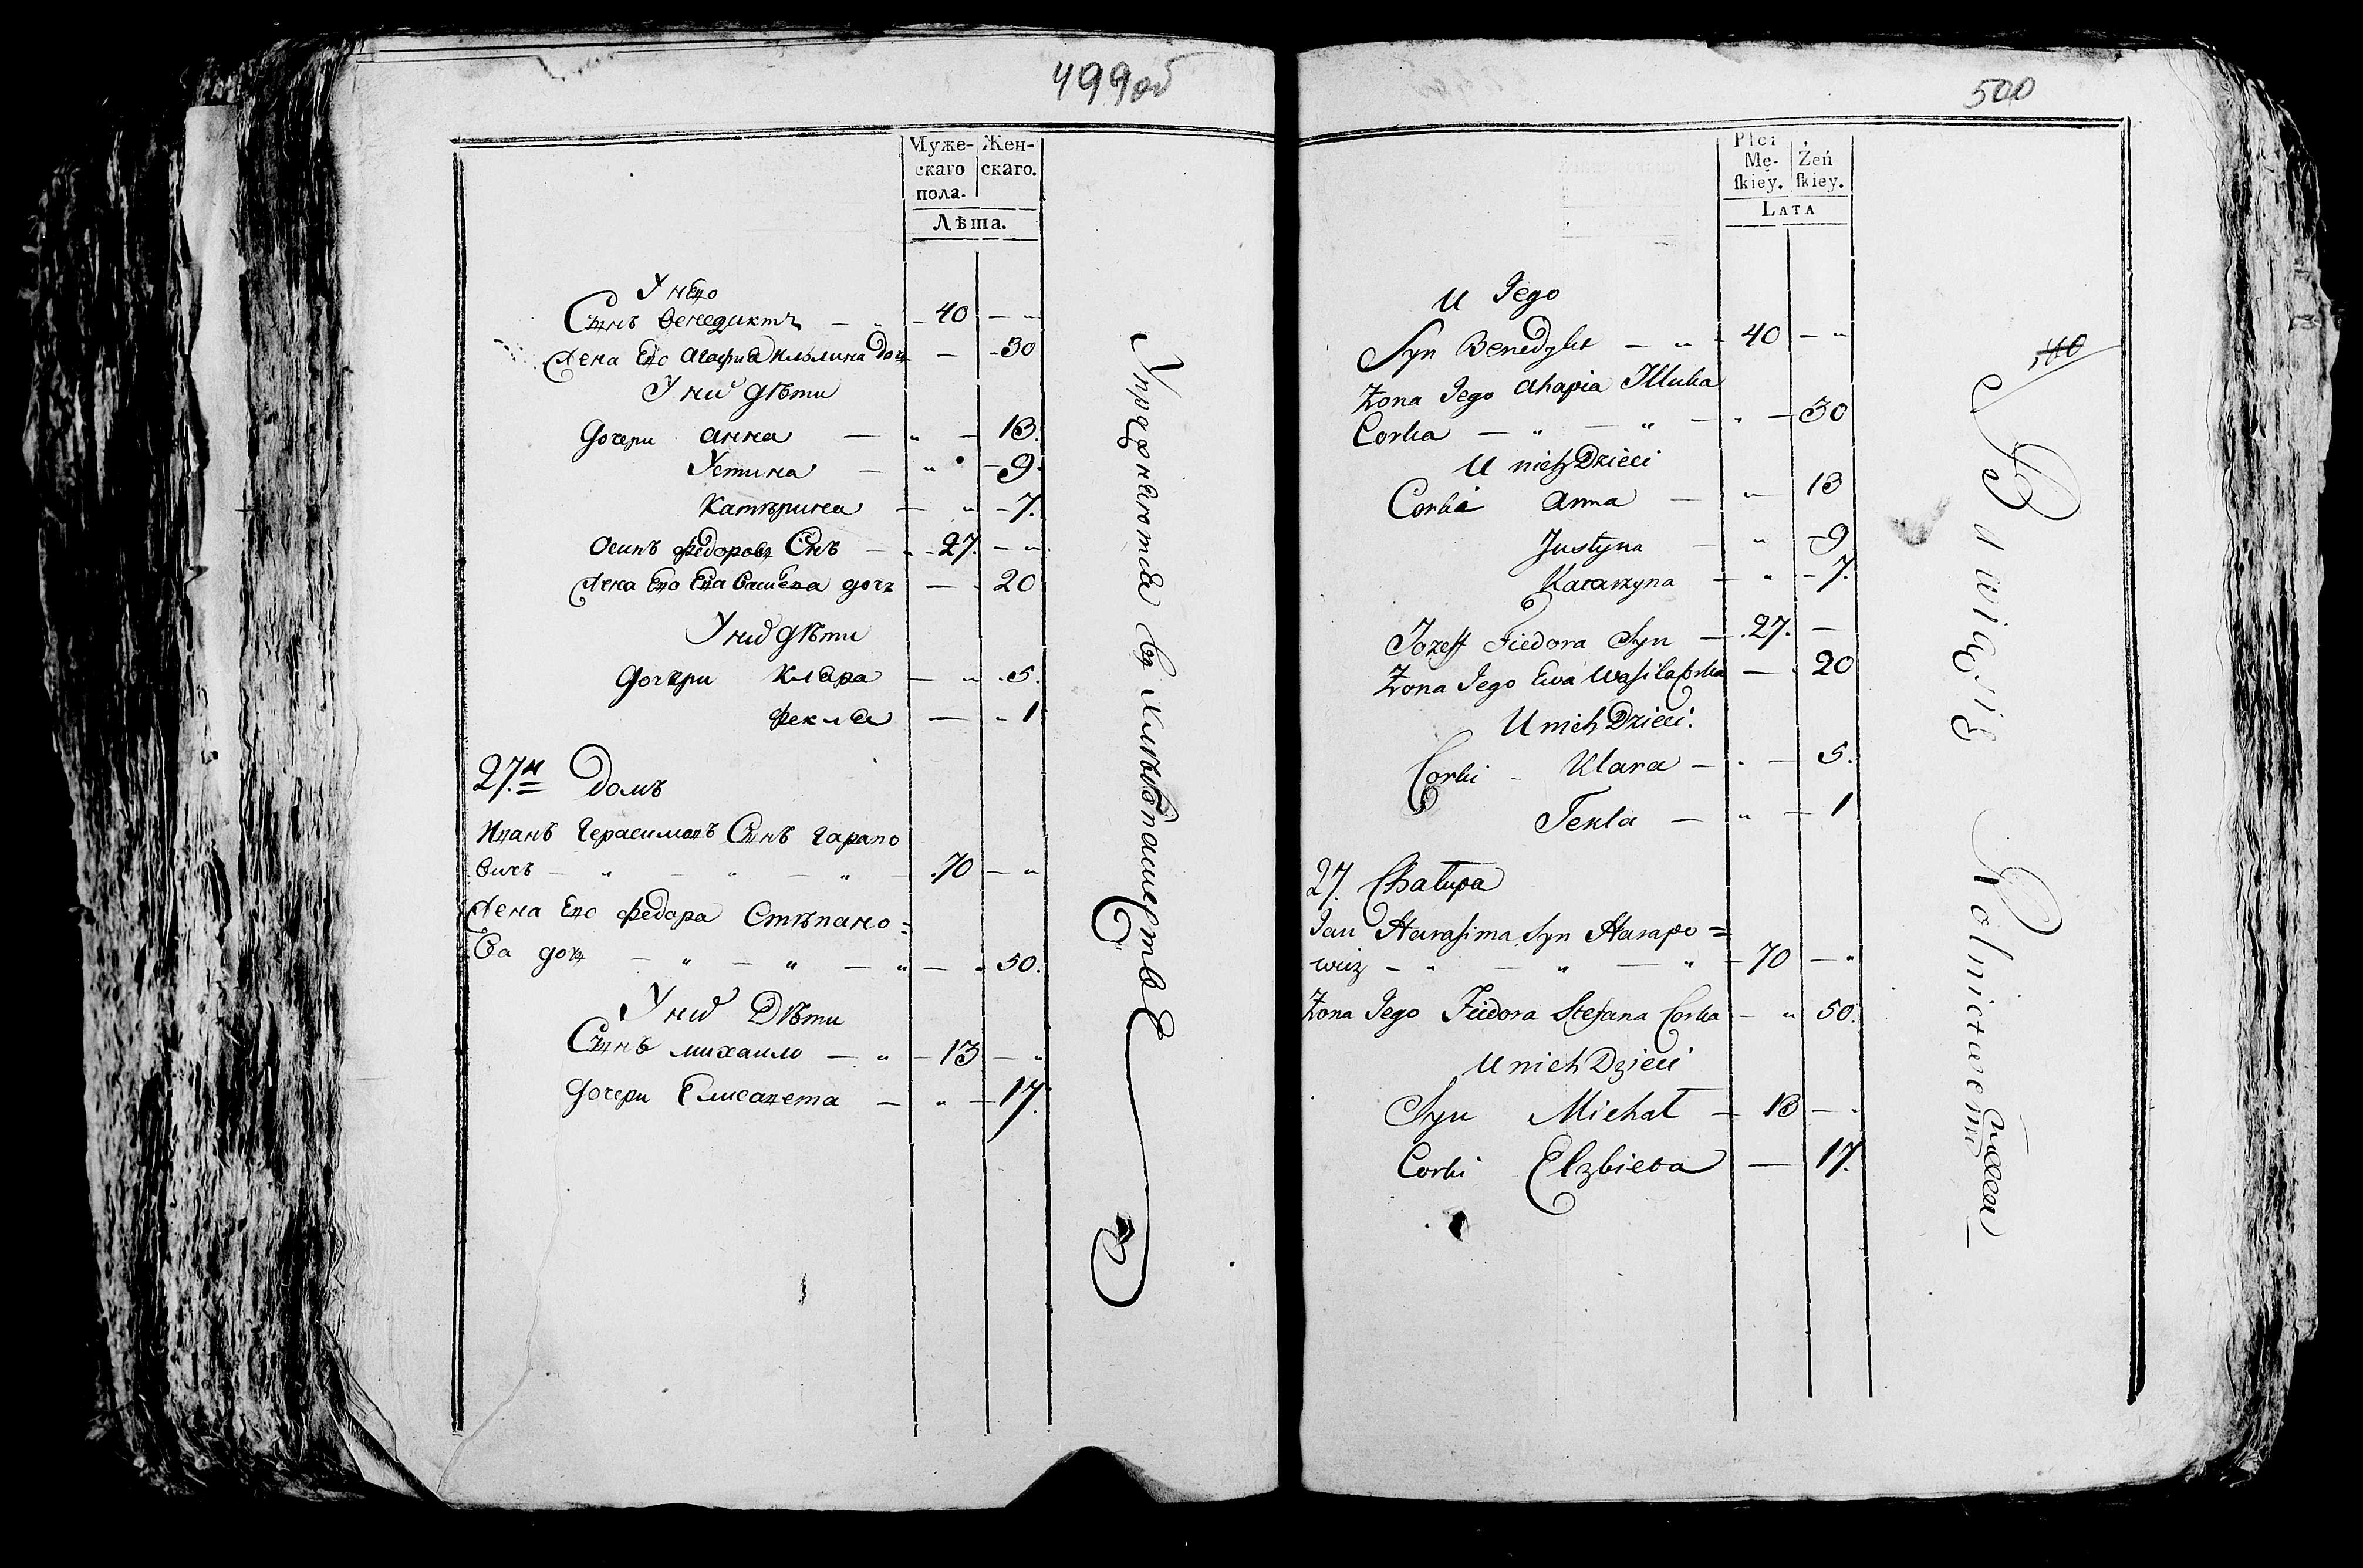 499об
Муже- Жен-
скаго скаго.
пола.
Лѣта.
У нево
Сынъ Венедиктъ — „ — 40 — „
Жена Ево Агафия Ильлина дочь — - 30
У них дѣти
Дочери Анна — „ — 13.
Устина — „ — 9.
Катерина — „ - 7.
Осипъ Федоровъ Снъ — - 27. — „
Жена Ево Ева Васильева дочь — - 20
У них дѣти
Дочери Клара — „ - 5.
Фекла — - 1
27.й Домъ
Иванъ Герасимовъ Сынъ Гарапо
вичъ — „ — „ — „ - 70 — „
Жена Ево Федора Степано=
ва дочь — „ — „ — „ — „ 50.
У них Дѣти
Сынъ Михаило — „ — 13 — „
Дочери Елисавета — „ — 17.
Упражняются въ хлѣбопашествѣ
500
Płci
Mę- Żeń
ſkiey. ſkiey.
LATA
U Jego
Syn Benedykt — „ - 40 — „
Zona Jego Ahapia Illuka
Corka — „ — „ — „ — 30
U nich Dzieci
Corki Anna — „ — 13
Justyna — „ - 9
Katarzyna — „ - 7.
Jozeff Fiedora Syn — . 27. —
Zona Jego Ewa Waſila Corka — . 20
U nich Dzieci.
Corki - Klara — „ — 5.
Tekla — „ — 1
27. Chałupa
Jan Harasima Syn Harapo=
wicz - „ — „ — „ - 70 — „
Zona Jego Fiedora Stefana Corka — „ 50.
U nich Dzieci
Syn Michał — 13 — -
Corki Elzbieta — 17.
Bawią się Rolnictwem